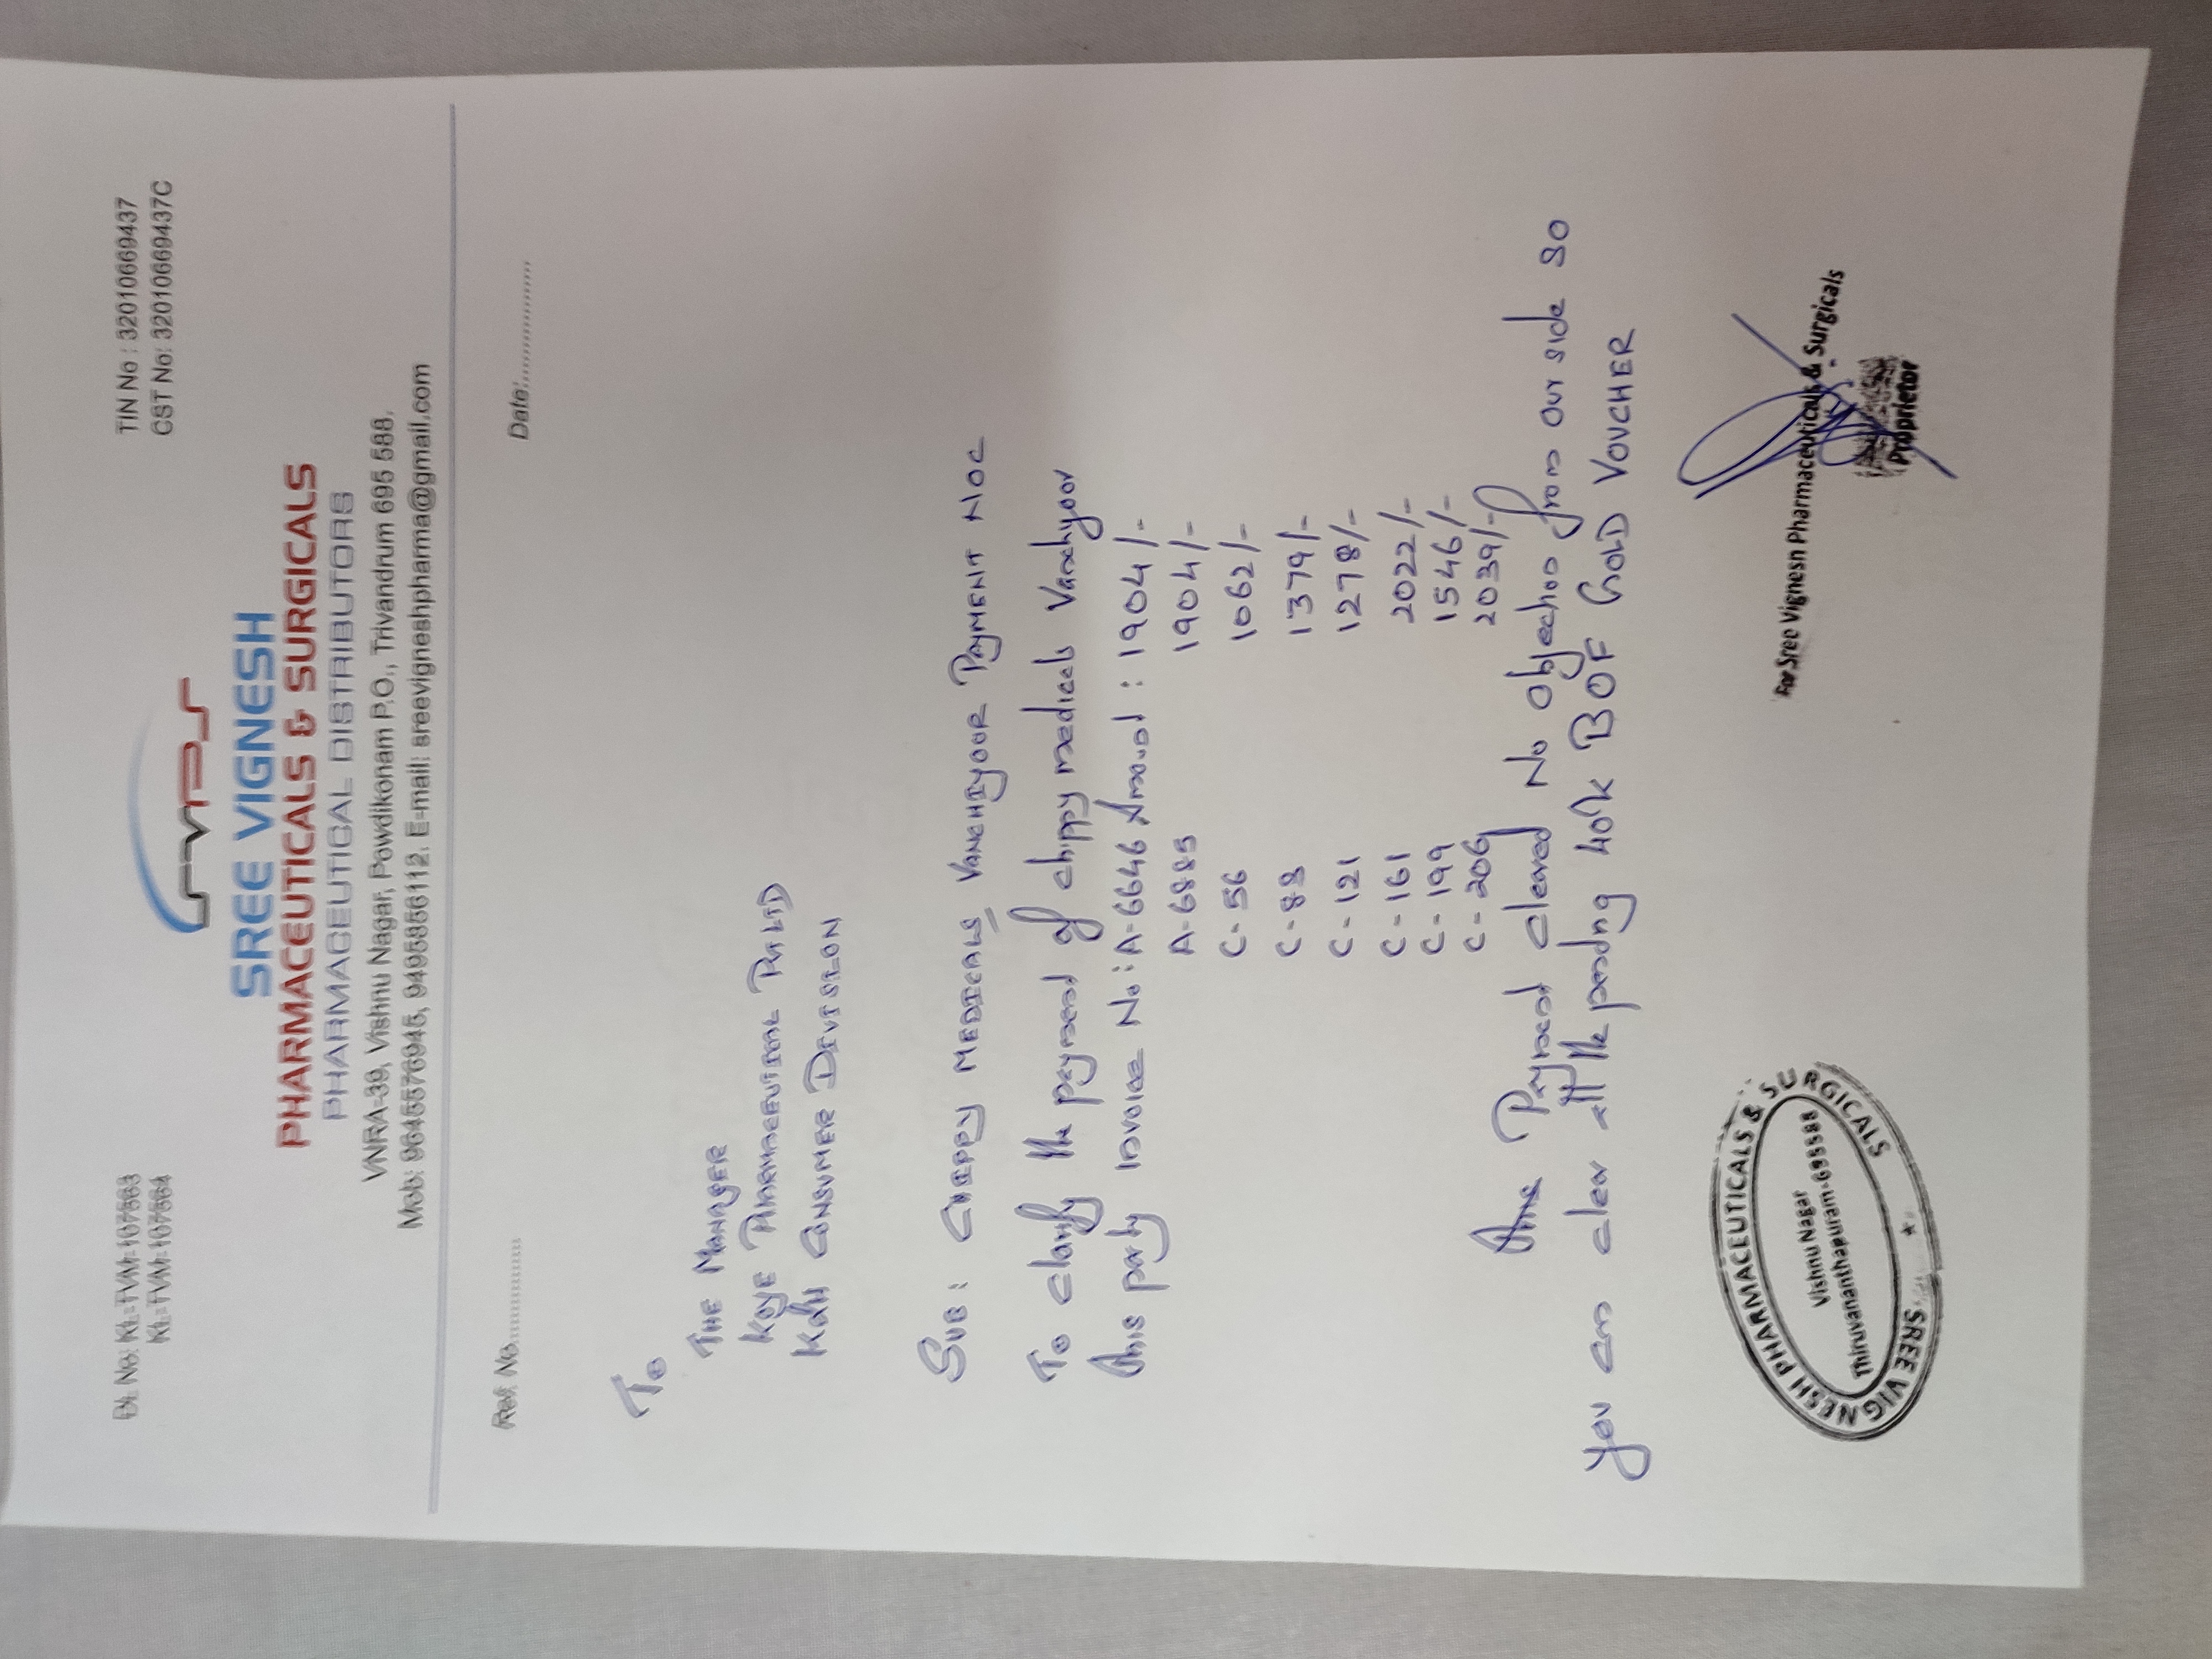 DL No: KL-TVM-107563
KL-TVM-107564
TIN No : 32010669437
CST No: 32010669437C
SVPS
SREE VIGNESH
PHARMACEUTICALS & SURGICALS
PHARMACEUTICAL DISTRIBUTORS
VNRA-39, Vishnu Nagar, Powdikonam P.O., Trivandrum 695 588.
Mob: 9645576945, 9495856112. E-mail: sreevigneshpharma@gmail.com
Ref. No............
Date:...............
To
THE MANAGER
PHARMACEUTICAL PVT LTD
CONSUMER DIVISION
SUB: CHIPPY MEDICALS VANCHIYOOR PAYMENT NOC
To clarify the payment of chippy medicals Vanchyoor
This party invoice No: A-6646 Amount : 1904/-
A-6885 1904/-
C-56 1062/-
C-88 1379/-
C-121 1278/-
C-161 2022/-
C-199 1546/-
C-206 2039/-
Payment cleared No objection from our side so
you can clear all the pending 40k BOF GOLD VOUCHER
SREE VIGNESH PHARMACEUTICALS & SURGICALS
Vishnu Nagar
Thiruvananthapuram-695588
For Sree Vignesh Pharmaceuticals & Surgicals
Proprietor